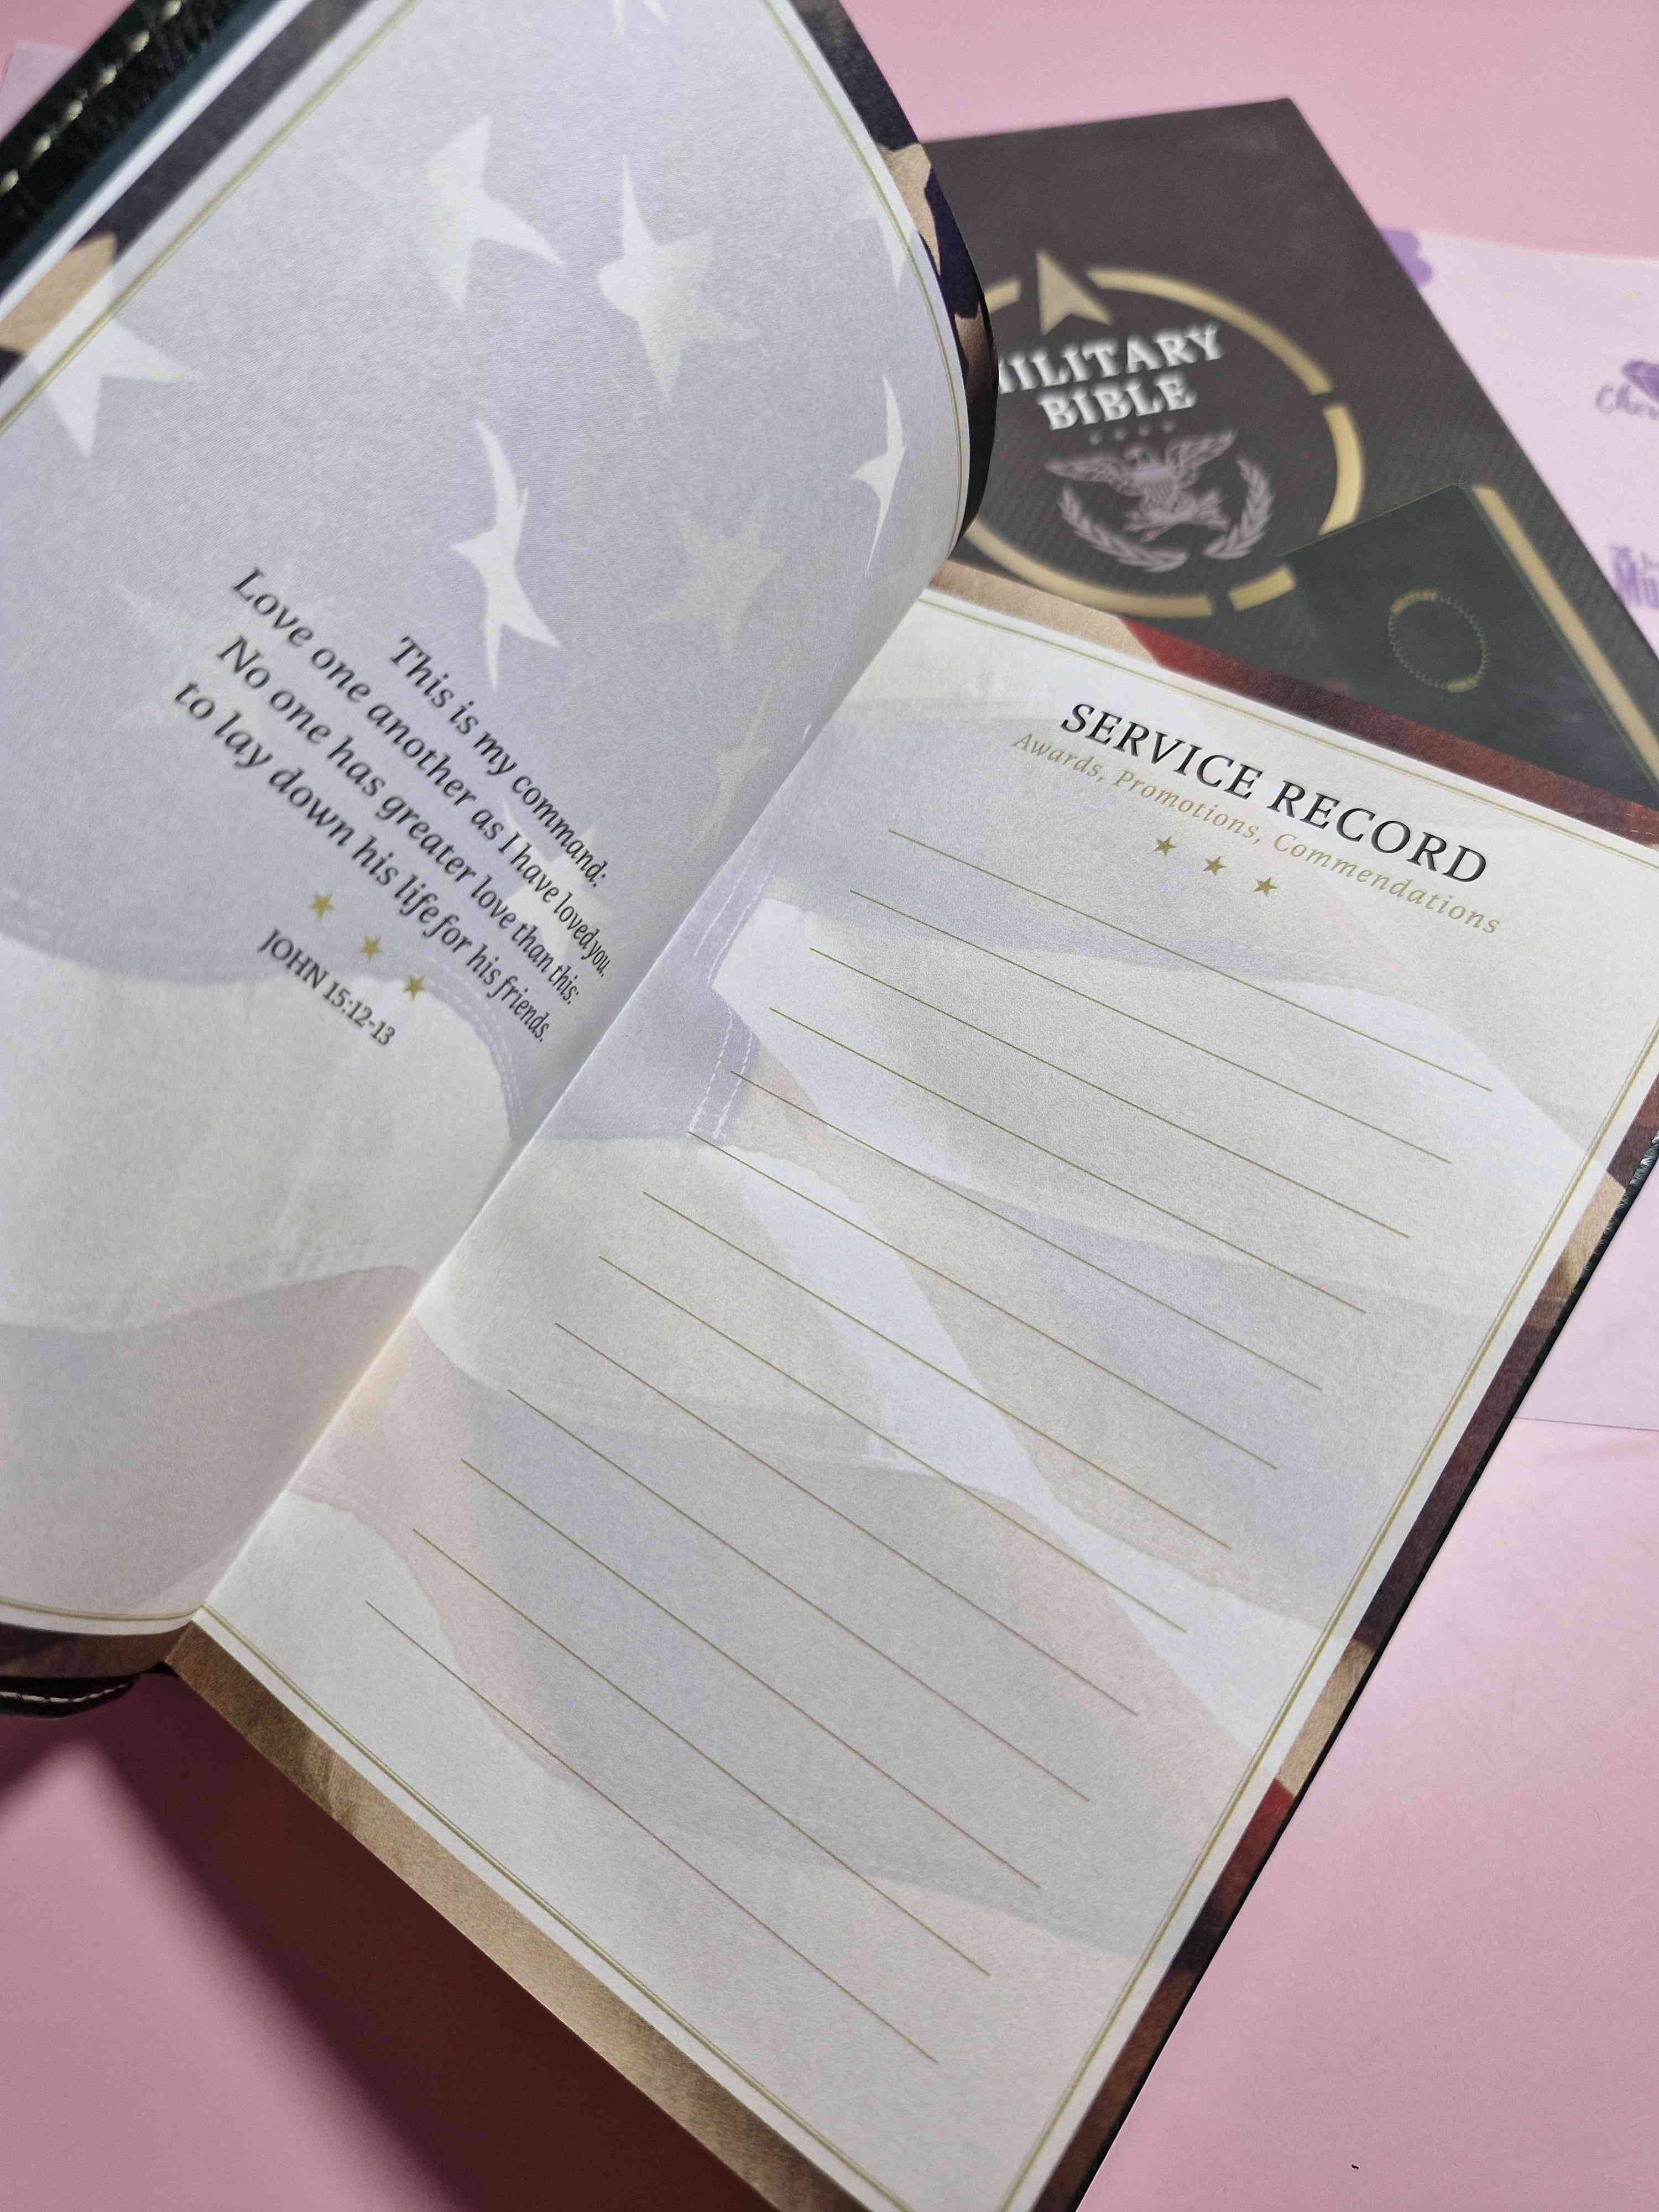 This is my command:
Love one another as I have loved you.
No one has greater love than this:
to lay down his life for his friends.
JOHN 15:12-13
SERVICE RECORD
Awards, Promotions, Commendations
MILITARY
BIBLE